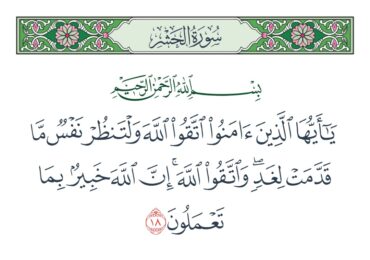 سُورَةُ الحَشْرِ
بِسْمِ اللَّهِ الرَّحْمَٰنِ الرَّحِيمِ
يَٰٓأَيُّهَا ٱلَّذِينَ ءَامَنُوا۟ ٱتَّقُوا۟ ٱللَّهَ وَلْتَنظُرْ نَفْسٌ مَّا
قَدَّمَتْ لِغَدٍۖ وَٱتَّقُوا۟ ٱللَّهَۚ إِنَّ ٱللَّهَ خَبِيرٌۢ بِمَا
تَعْمَلُونَ ١٨